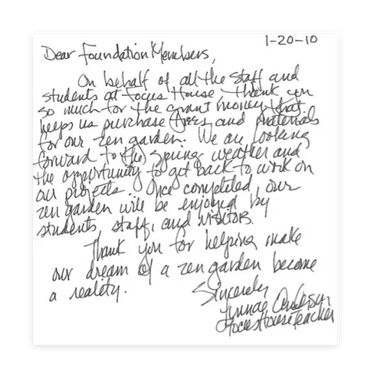 1-20-10
Dear Foundation Members,
On behalf of all the staff and
students at Focus House, thank you
so much for the grant money that
helps us purchase trees and materials
for our zen garden. We are looking
forward to the spring weather and
the opportunity to get back to work on
our projects. Once completed, our
zen garden will be enjoyed by
students, staff, and visitors.
Thank you for helping make
our dream of a zen garden become
a reality.
Sincerely,
Focus House Teacher